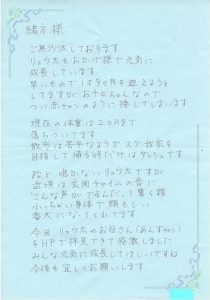 緒方様
ご無沙汰しております
リュウ太もおかげ様で元気に
成長しています
早いもので1才9ヶ月を迎えようと
してますがおチビちゃんなので
つい赤チャンのように接してしまいます
現在の体重は2.0kgで
落ちついてます
散歩が苦手なようでスグ我家を
目指して帰る時だけはダッシュです
殆ど鳴かないリュウ太ですが
近頃は玄関チャイムの音に
こんな声がでるんだ、と驚く程
小っちゃい身体で頼もしい
番犬になってくれてます
今日リュウ太のお母さん(あんずちゃん)
をHPで拝見できて感激しました
みんな元気に成長してほしいですね
今後も宜しくお願いします